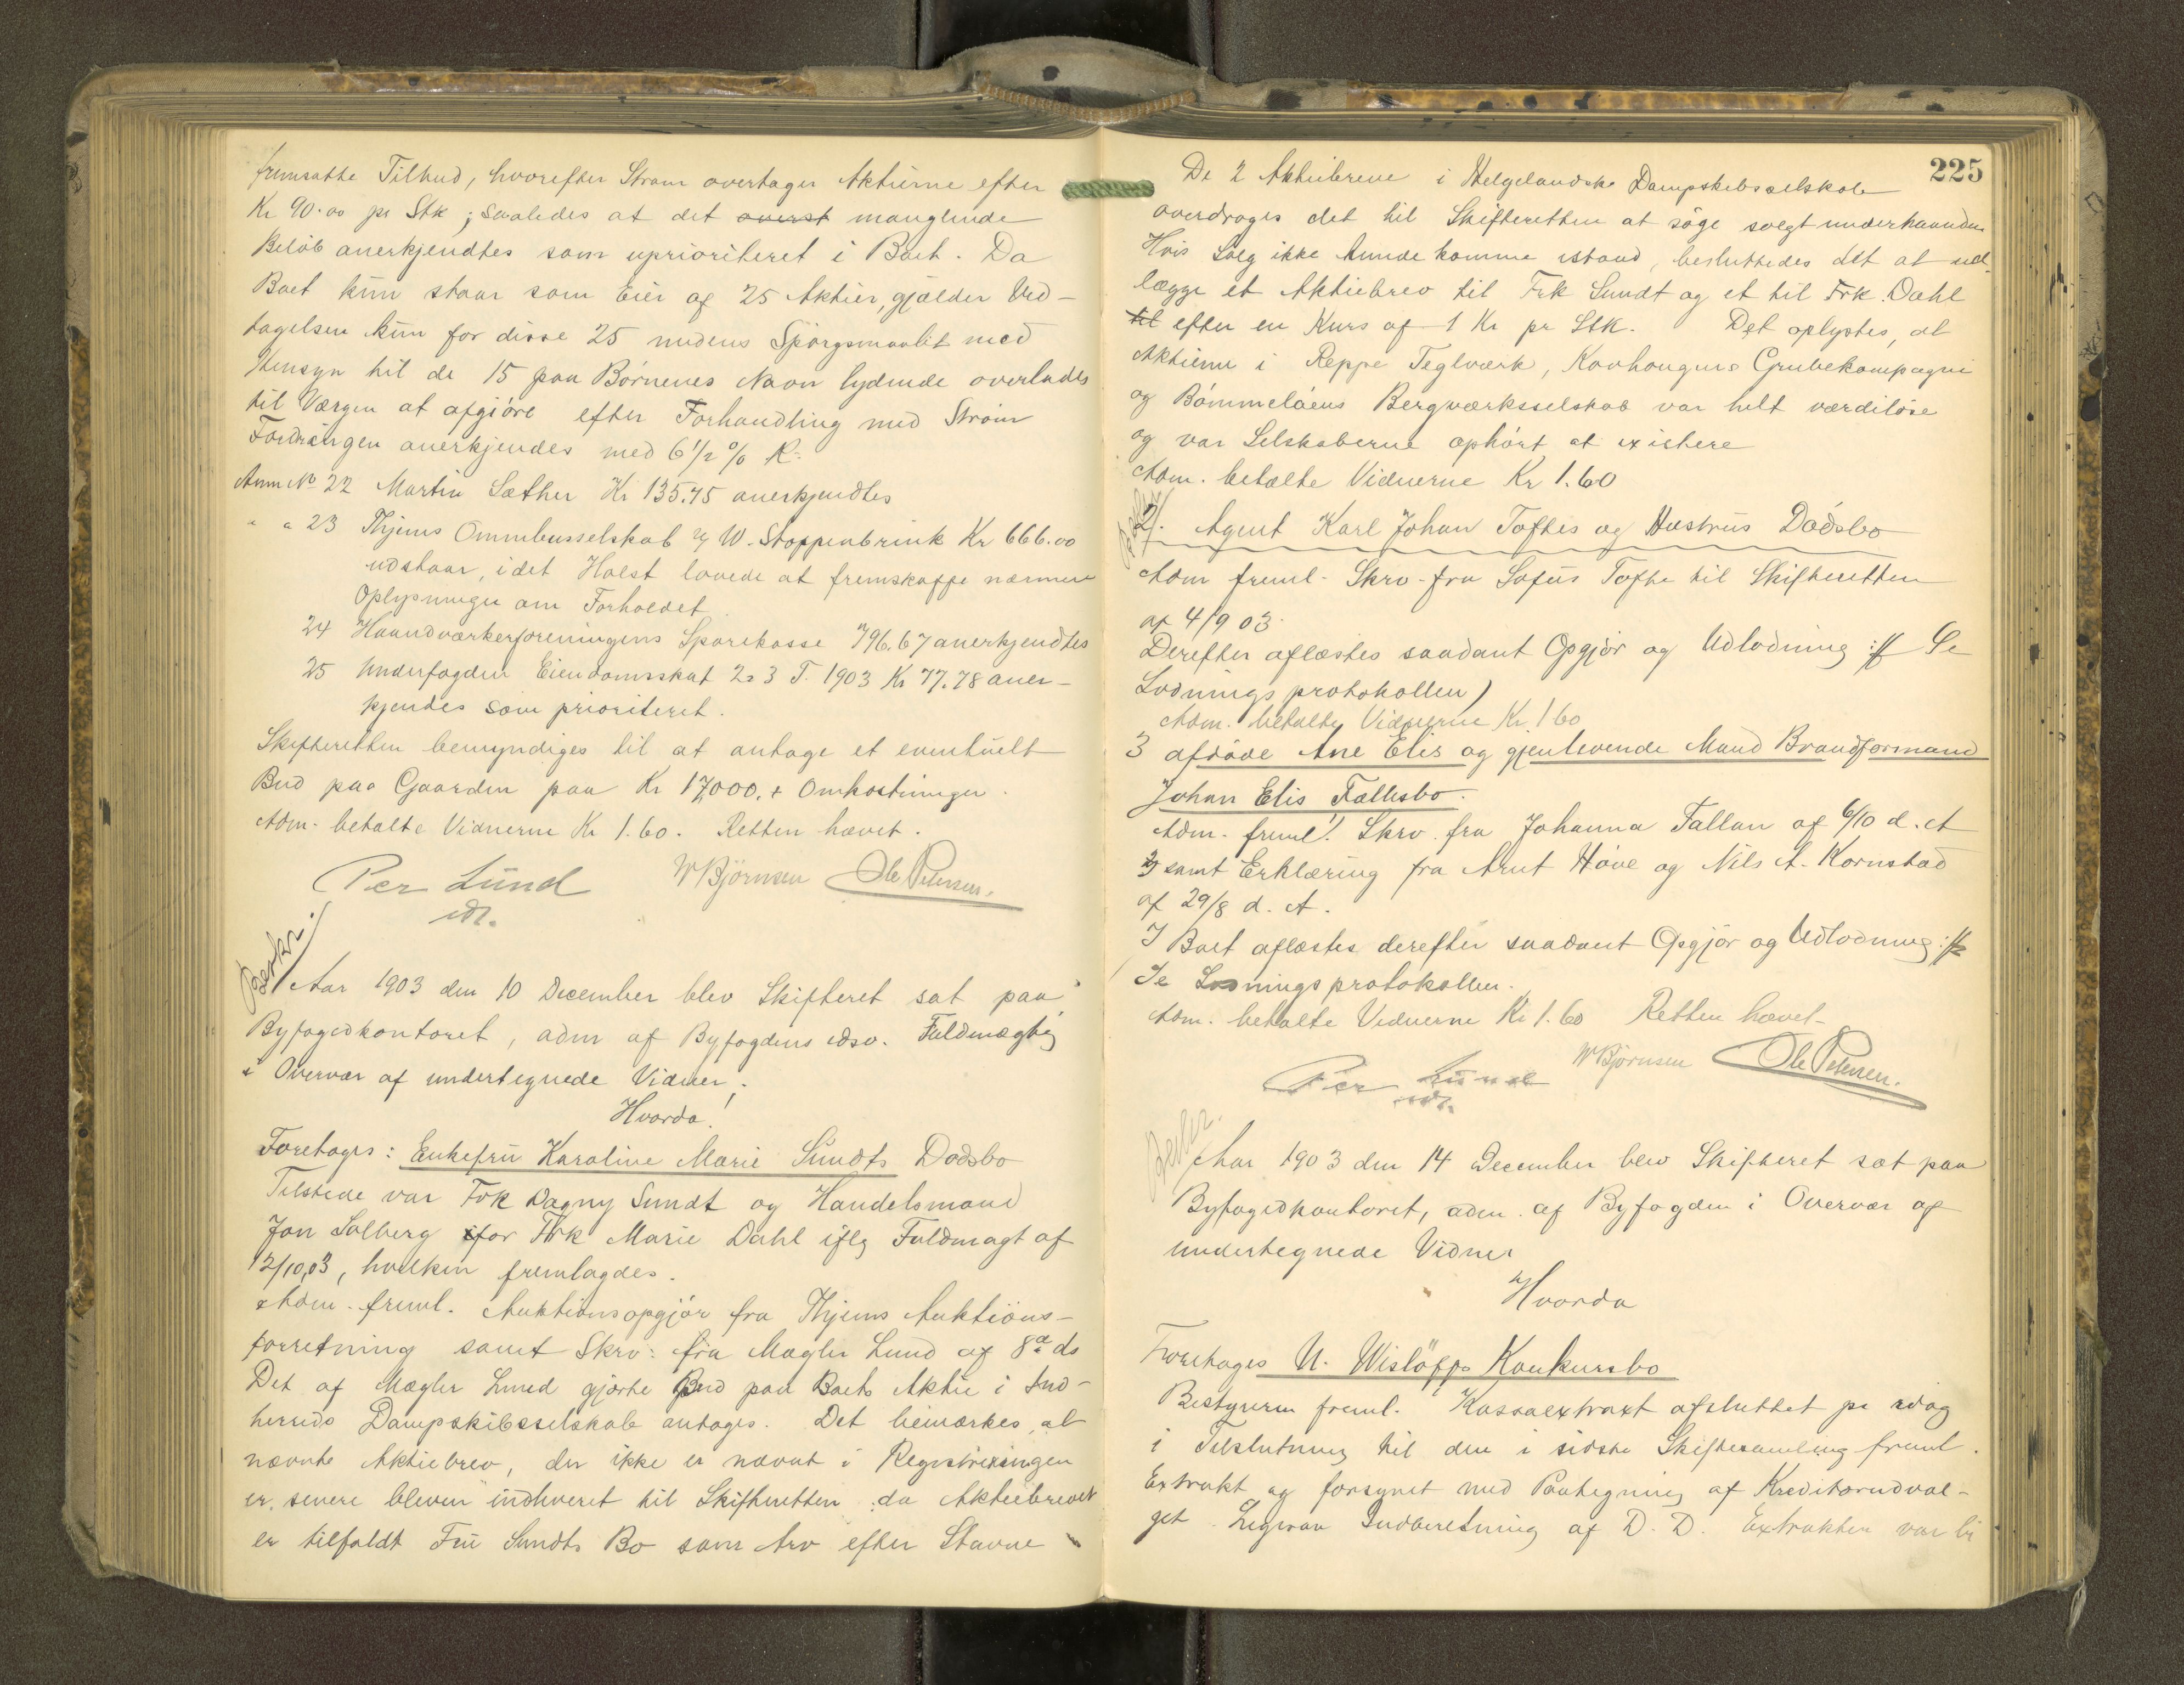 fremsatte Tilbud, hvorefter Strøm overtager Aktierne efter
Kr 90.00 pr Stk; saaledes at det overst manglende
Beløb anerkjendtes som uprioriteret i Boet. Da
Boet kun staar som Eier af 25 Aktier, gjælder Ved-
tagelsen kun for disse 25 medens Spørgsmaalet med
Hensyn til de 15 paa Børnenes Navn lydende overlades
til Værgen at afgjøre efter Forhandling med Strøm
Fordringen anerkjendes med 6 1/2 % R.
Anm No 22 Martin Sæther Kr 135.75 anerkjendtes
" " 23 Thjems Omnibusselskab v/ W. Stoppenbrink Kr 666.00
udstaar, idet Holst lovede at fremskaffe nærmere
Oplysninger om Forholdet.
24 Haandværkerforeningens Sparekasse 796.67 anerkjendtes
25 Underfogden Eiendomsskat 2 3 T. 1903 Kr 77.78 aner-
kjendes som prioriteret.
Skifteretten bemyndiges til at antage et eventuelt
Bud paa Gaarden paa Kr 17,000. + Omkostninger.
Adm. betalte Vidnerne Kr 1.60. Retten hævet.
Per Lund W Bjørnsen Ole Petersen.
cst.
Beskr.
Aar 1903 den 10 December blev Skifteret sat paa
Byfogedkontoret, adm af Byfogdens edsv. Fuldmægtig
i Overvær af undertegnede Vidner;
Hvorda!
Foretoges: Enkefru Karoline Marie Sundts Dødsbo
Tilstede var Frk Dagny Sundt og Handelsmand
Jon Solberg for Frk Marie Dahl iflg Fuldmagt af
12/10,03, hvilken fremlagdes.
Adm. freml. Auktionsopgjør fra Thjems Auktions-
forretning samt Skrv: fra Mægler Lund af 8de ds
Det af Mægler Lund gjorte Bud paa Boets Aktie i Ind-
herreds Dampskibsselskab antages. Det bemærkes, at
nævnte Aktiebrev, der ikke er nævnt i Registreringen
er senere bleven indleveret til Skifteretten da Aktiebrevet
er tilfaldt Fru Sundts Bo som Arv efter Stavne
225
De 2 Aktiebreve i Helgelandske Dampskibsselskab
overdroges det til Skifteretten at søge solgt underhaanden
Hvis Salg ikke kunde komme istand, besluttedes det at ud-
lægge et Aktiebrev til Frk Sundt og et til Frk. Dahl
til efter en Kurs af 1 Kr pr Stk. Det oplystes, at
Aktierne i Reppe Teglværk, Kovhougens Grubekompagni
og Bømmeløens Bergværksselskab var helt værdiløse
og var Selskaberne ophørt at existere
Adm. betalte Vidnerne Kr 1.60
2. Agent Karl Johan Toftes og Hustrus Dødsbo
Adm freml. Skrv. fra Sofus Tofte til Skifteretten
af 4/9 03.
Derefter aflæstes saadant Opgjør og Udlodning :// Se
Lodningsprotokollen)
Adm. betalte Vidnerne Kr 1.60
3 afdøde Ane Elis og gjenlevende Mand Brandformand
Johan Elis Fællesbo.
Adm. freml. 1) Skrv. fra Johanna Fallan af 6/10 d. A
2) samt Erklæring fra Arnt Hove og Nils A. Kornstad
af 29/8 d. A.
I Boet aflæstes derefter saadant Opgjør og Udlodning ://
Se Lodningsprotokollen.
Adm. betalte Vidnerne Kr 1.60 Retten hævet.
Per Lund W Bjørnsen Ole Petersen.
cst.
Beskr.
Aar 1903 den 14 December blev Skifteret sat paa
Byfogedkontoret, adm. af Byfogden i Overvær af
undertegnede Vidner
Hvorda
Foretoges U. Wisløffs Konkursbo
Bestyreren freml. Kassaextraxt afsluttet pr idag
i Tilslutning til den i sidste Skiftesamling freml.
Extrakt og forsynet med Paategning af Kreditorudval-
get. Ligesaa Indberetning af D. D. Extrakten var bi